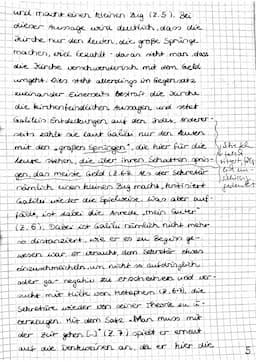 und macht einen kleinen Zug (Z.5). Bei
dieser Aussage wird deutlich, dass die
Kirche nur den Leuten, die große Sprünge
machen, viel bezahlt - daran sieht man dass
die Kirche verschwenderisch mit dem Geld
umgeht. Dies steht allerdings im Gegensatz
zueinander. Einerseits bestraft die Kirche
die kirchenfeindlichen Aussagen und setzt
Galileis Entdeckungen auf den Index, anderer-
seits zahlt sie laut Galilei nur den Leuten
mit den „großen Sprüngen", die hier für die
Leute stehen, die über ihren Schatten sprin-
gen, das meiste Geld (Z.6f). Als der Sekretär
nämlich einen kleinen Zug macht, kritisiert
Galilei wieder die Spielweise. Was aber auf-
fällt, ist dabei die Anrede „mein Guter"
(Z.6). Dabei ist Galilei nämlich nicht mehr
so distanziert, wie er es zu Beginn ge-
wesen war. Er versucht dem Sekretär etwas
einzuschmeicheln, um nicht so aufdringlich
oder gar negativ zu erscheinen und ver-
sucht mit Hilfe von Metaphern (Z.6-7), die
Sekretäre wieder von seiner Theorie zu ü-
berzeugen. Mit dem Satz „Man muss mit
der Zeit gehen [...]" (Z.7) spielt er erneut
auf die Denkweisen an, da er hier die
5